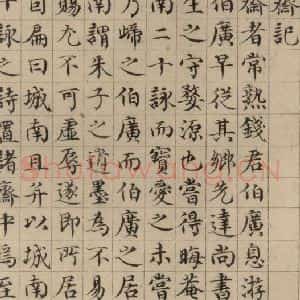 齋記
齋者常熟錢君伯廣息游
伯廣早從其鄉先達尚書
生之守婺源也嘗得晦菴
南二十詠而寶愛之未嘗
乃歸之伯廣而伯廣之居
南謂朱子之遺墨為不易
賜尤不可虛辱遂即所居
扁曰城南且并以城南
十詠之詩置諸齋中為至